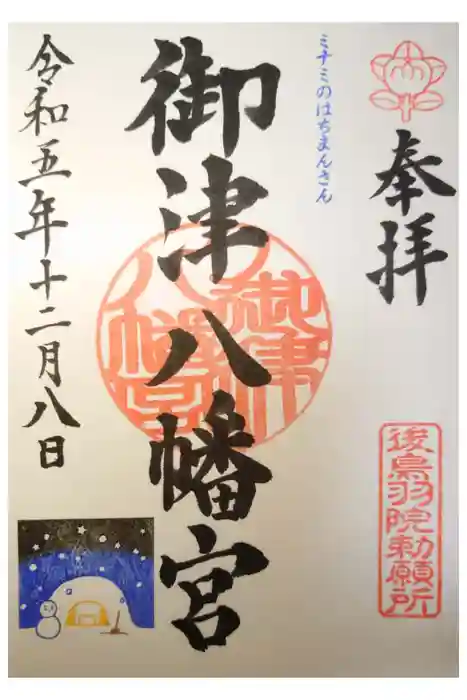 奉拝
後鳥羽院勅願所
ミナミのはちまんさん
御津八幡宮
御津
八幡宮
令和五年十二月八日